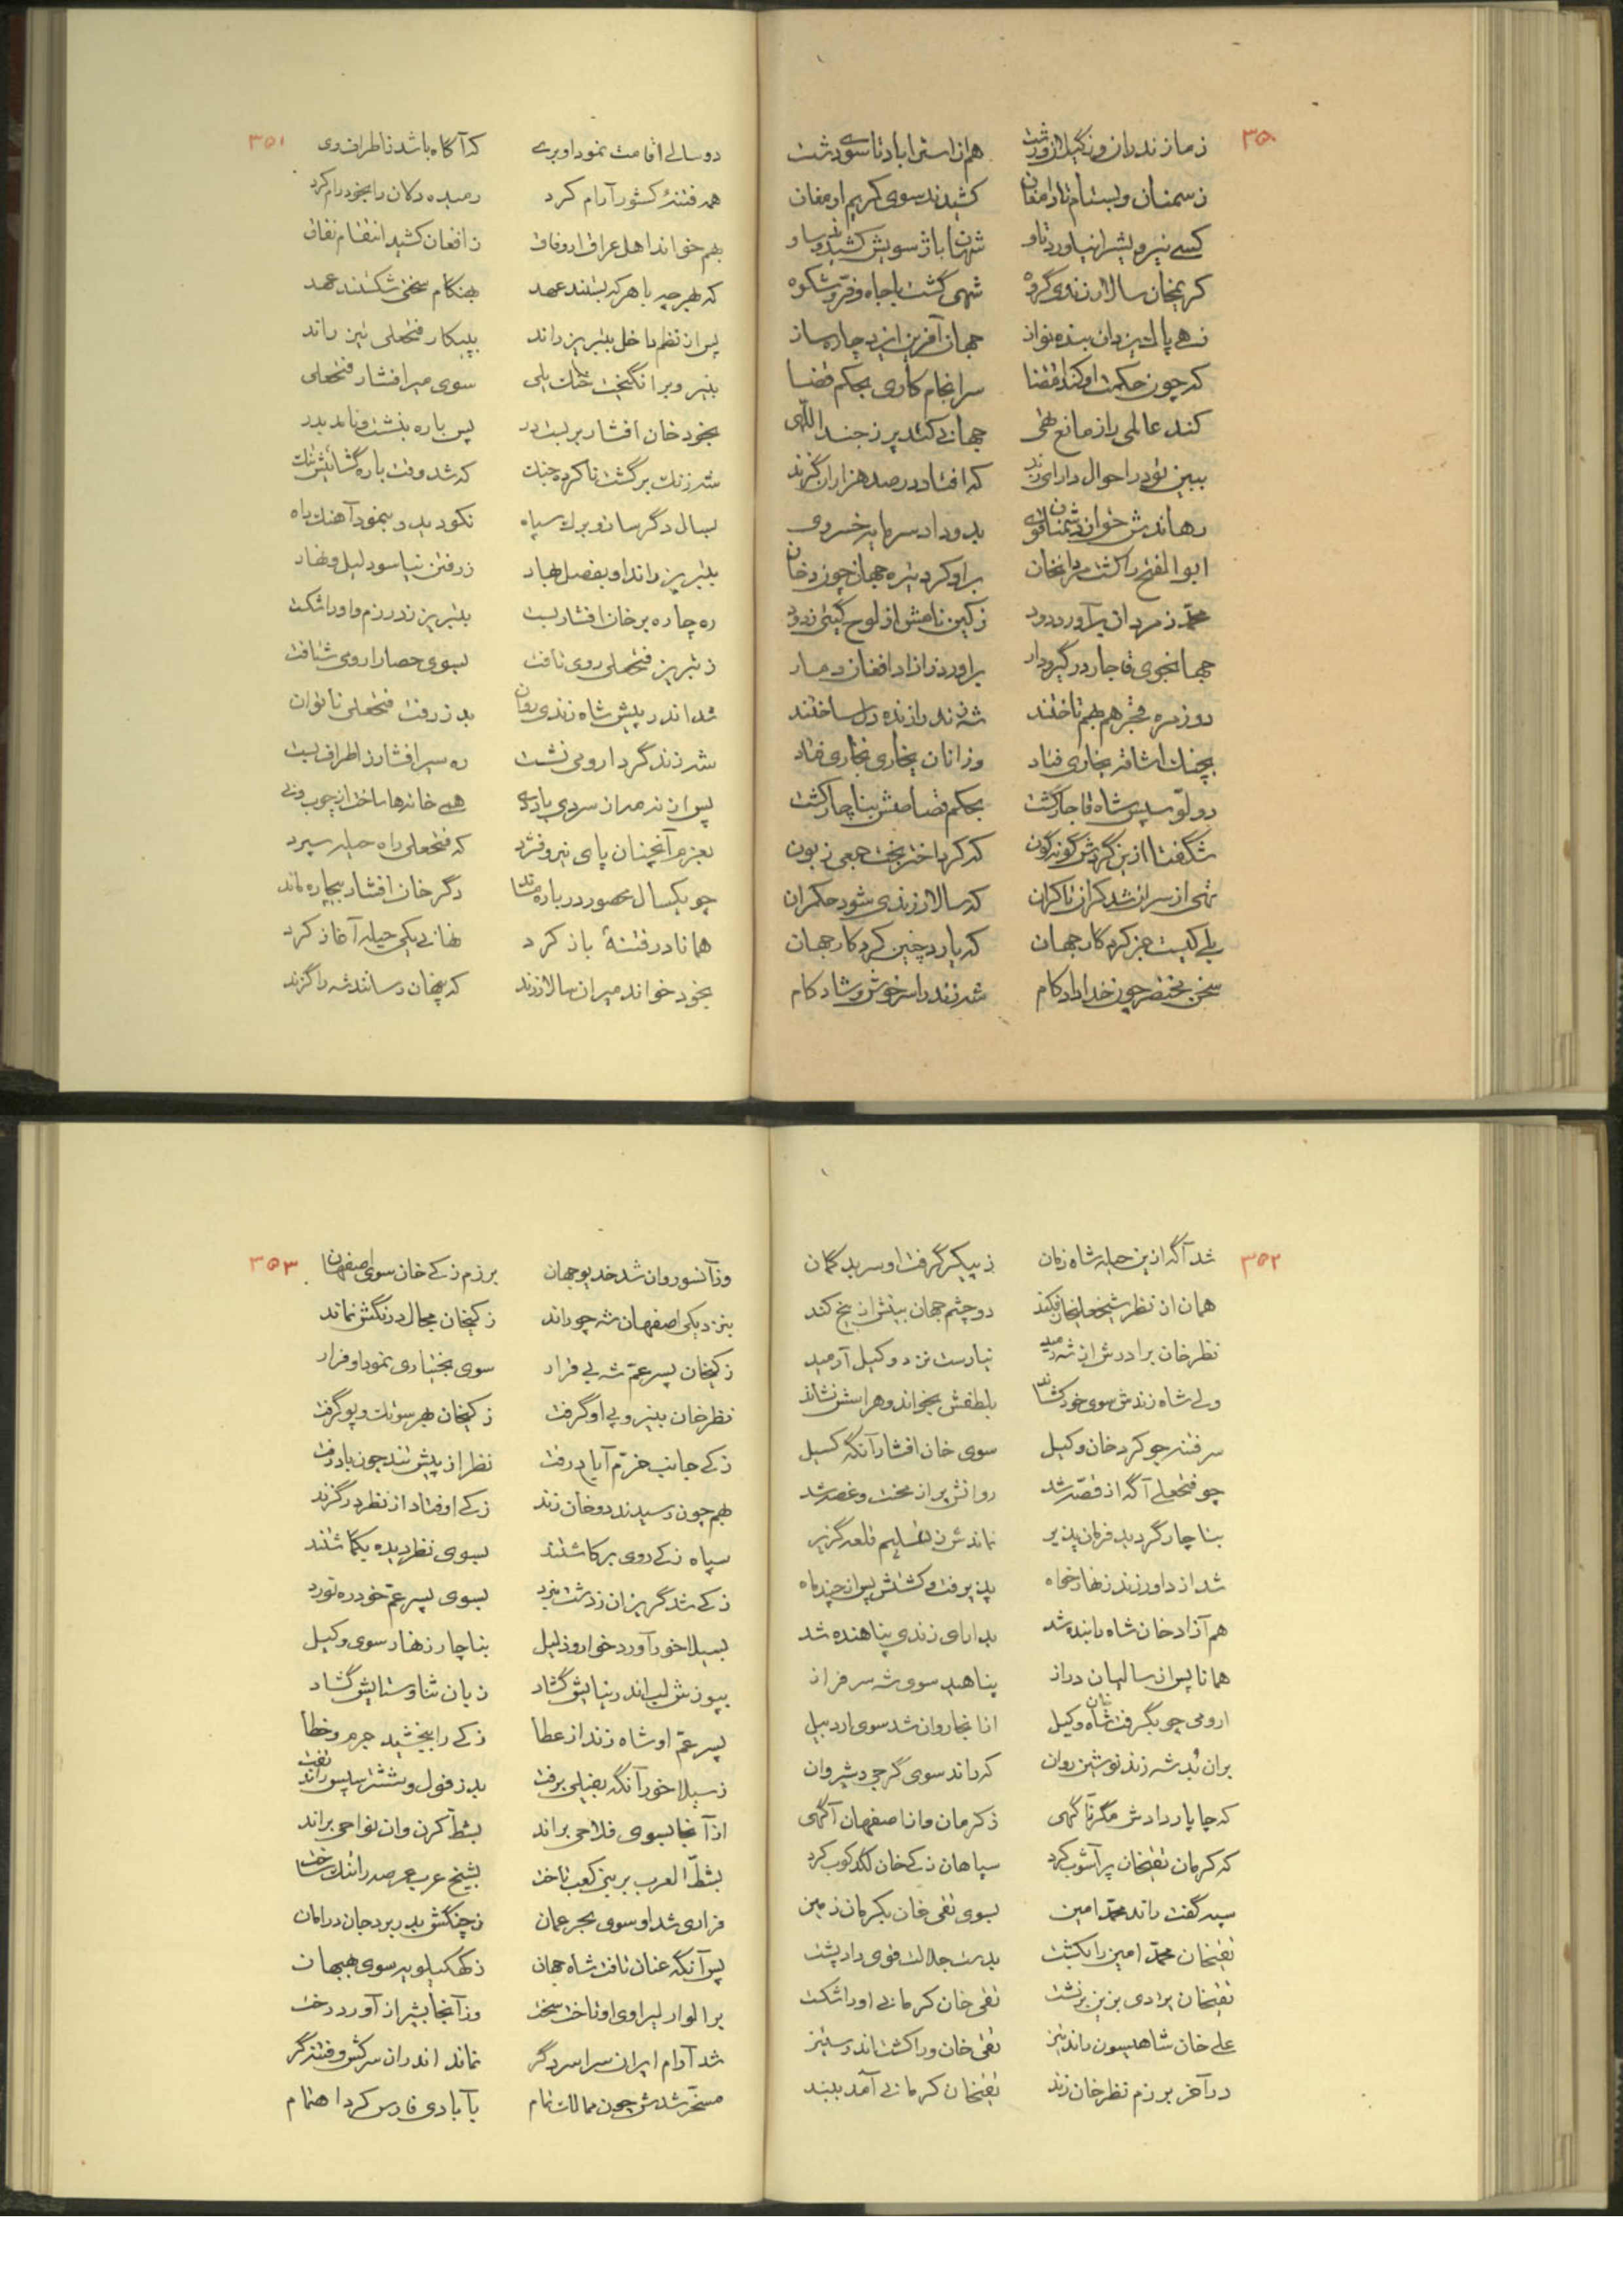 ۳۵۰
ز مازندران وز گیلان و رشت هم از استراباد تا سوی دشت
ز سمنان و بسطام تا دامغان کشیدند سوی کریم ارمغان
کسی نیرو پیشش نیاورد تاو شهان باژ سویش کشیدند و ساو
کریمخان سالار زندی گروه شهی گشت با جاه و فرّ و شکوه
زهی پالشین دان بنده نواز جهان آفرین ایزد چاره ساز
که چون حکمت او کند اقتضا سرانجام کاری بحکم قضا
کند عالمی را ز مانع تهی جهانی کند پر ز جند اللّهی
ببین تو در احوال دارای زند که افتاد در صد هزاران گزند
رهاندش ز خوان دشمنان قوی بدو داد سرمایهٔ خسروی
ابوالفتح را کشت مردانخان بر او کرد تیره جهان چون دخان
محمّد ز مردان برآورد دود ز کین نامش از لوح گیتی زدود
جهانجوی قاجار در گیر و دار برآورد ز آزاد افغان دمار
دو زمره قجر هم بهم تاختند شه زند را زنده دل ساختند
بچنگ اشاقه بخاری فتاد وز آنان بخاری نجاری فتاد
دولّو سپس شاه قاجار کشت بحکم قصاصش بناچار کشت
شگفتا ازین گردش گونه گون که کرد اختر بخت جمعی زبون
تهی از سران شد کران تا کران که سالار زندی شود حکمران
بلی کیست جز کردگار جهان که یارد چنین کرد کار جهان
سخن مختصر چون خدا داد کام شه زند را سر خوش و شاد کام
۳۵۱
دو سالی اقامت نمود او بری که آگاه باشد ز اطراف وی
همه فتنهٔ کشور آرام کرد رمیده دلان را بخود رام کرد
بهم خواند اهل عراق از وفاق ز افغان کشید انتقام نفاق
که بهر چه با هر که بستند عهد بهنگام سختی شکستند عهد
پس از نظم داخل بتبریز راند بپیکار فتحعلی تیز راند
بنیرو برانگیخت خنگ یلی سوی میر افشار فتحعلی
بخود خان افشار بر بست در پس باره بنشست و نامد بدر
شه زند برگشت ناکرده جنگ که شد وقت باره گشائیش تنگ
بسال دگر سان و برگ سپاه نکو دید و بنمود آهنگ راه
بتبریز راند او بفصل بهار ز رفتن نیاسود لیل و نهار
ره چاره بر خان افشار بست بتبریز زد رزم و او را شکست
ز تبریز فتحعلی روی تافت بسوی حصار ارومی شتافت
شد اندر پیش شاه زندی روان بدز رفت فتحعلی ناتوان
شه زند گرد ارومی نشست ره سیر افشار ز اطراف بست
پس از نه مه از سردی باد دی همی خانه‌ها ساخت از چوب و نی
بعزم آنچنان پای نیرو فشرد که فتحعلی راه حیله سپرد
چو یکسال محصور در باره ماند دگر خان افشار بیچاره ماند
همانا در فتنهٔ باز کرد نهانی یکی حیله آغاز کرد
بخود خواند میران سالار زند که پنهان رسانند شه را گزند
۳۵۲
شد آگه ازین حیله شاه زمان ز پیکر گرفت او سر بدگمان
همان از نظر شیخعلیخان فکند دو چشم جهان بینش از بیخ کند
نظر خان برادرش از شه رمید نیارست نزد وکیل آرمید
ولی شاه زندش سوی خود کشاند بلطفش بخواند و هراسش نشاند
سر فتنه جو کرد خان وکیل سوی خان افشار آنگه گسیل
چو فتحعلی آگه از قصّه شد روانش پر از محنت و غصّه شد
بناچار گردید فرمان پذیر نماندش ز تسلیم قلعه گزیر
شد از داور زند زنهار خواه پذیرفت و کشتش پس از چند ماه
هم آزاد خان شاه را بنده شد بدارای زندی پناهنده شد
همانا پس از سالیان دراز پناهید سوی شه سرفراز
ارومی چو بگرفت خان شاه وکیل از آنجا روان شد سوی اردبیل
بران بُد شه زند نوشین روان که راند سوی گرجی و شیروان
که چاپار دادش مگر آگهی ز کرمان و از اصفهان آگهی
که کرمان تقیخان پر آشوب کرد سپاهان زکی خان لگدکوب کرد
سپه گفت راند محمّد امین بسوی تقی خان بکرمان زمین
تقیخان محمّد امین را بکشت بدست جلالت قوی داد پشت
تقیخان برادی بزین بر نشست تقی خان کرمانی او را شکست
علی خان شاهیسون راند تیز تقی خان ورا کشت اندر ستیز
در آخر برزم نظر خان زند تقیخان کرمانی آمد ببند
۳۵۳
وز آنسو روان شد خدیو جهان برزم زکی خان سوی اصفهان
بنزدیکی اصفهان شه چو راند زکیخان مجال درنگش نماند
زکیخان پسر عمّ شه بی قرار سوی بختیاری نمود او فرار
نظر خان بنیرو پی او گرفت زکیخان بهر سو تک و پو گرفت
زکی جانب خرّم آباد رفت نظر از پیش تند چون باد رفت
بهم چون رسیدند دو خان زند زکی اوفتاد از نظر در گزند
سپاه زکی روی برکاشتند بسوی نظر دیده بگماشتند
زکی شد گریزان ز دشت نبرد بسوی پسر عمّ خود ره نورد
بسیلاخور آورد خوار و ذلیل بناچار زنهار سوی وکیل
بپوزش لب اندر نیایش گشاد زبان ثنا و ستایش گشاد
پسر عمّ او شاه زند از عطا زکی را ببخشید جرم و خطا
ز سیلاخور آنگه بفیلی برفت بدزفول و شُشتر سپس راند تفت
از آنجا بسوی فلاحی براند بشطّ کرن وان نواحی براند
بشطّ العرب بر بنی کعب تاخت بشیخ عرب عرصه را تنگ ساخت
فراری شد او سوی بحر عمان ز چنگش بدر برد جان در امان
پس آنگه عنان تافت شاه جهان ز کهکیلویه سوی بهبهان
بر الوار لیراوی او تاخت سخت وز آنجا بشیراز آورد رخت
شد آرام ایران سراسر دگر نماند اندران سرکش و فتنه گر
مسخّر شدش چون ممالک تمام بآبادی فارس کرد اهتمام